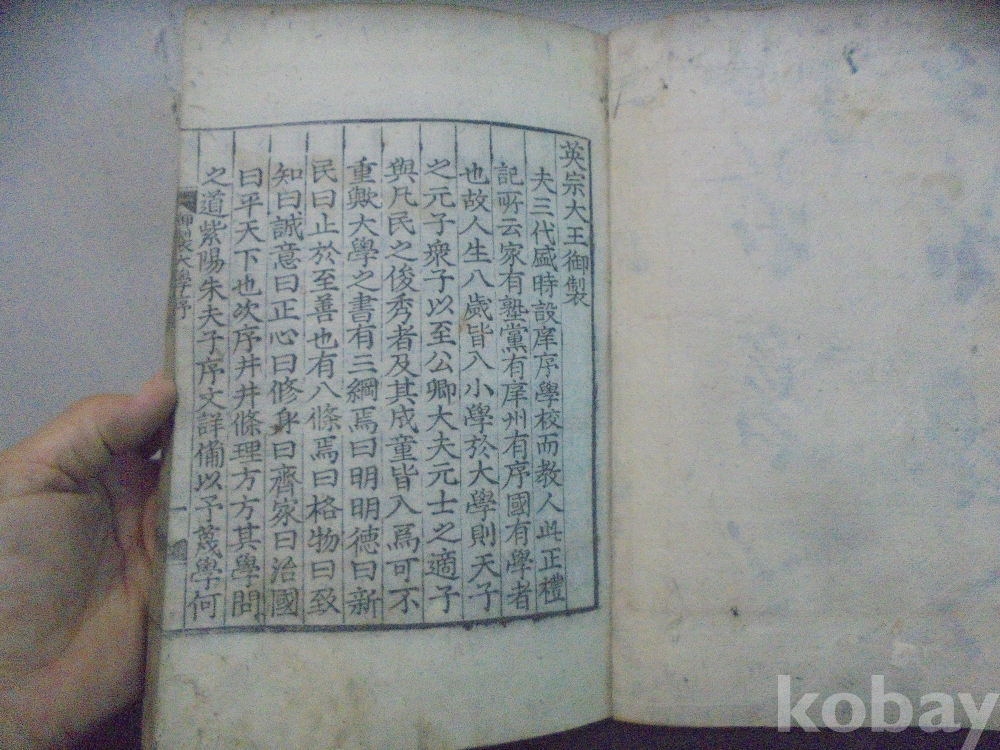 英宗大王御製
夫三代盛時設庠序學校而敎人此正禮
記所云家有塾黨有庠州有序國有學者
也故人生八歲皆入小學於大學則天子
之元子衆子以至公卿大夫元士之適子
與凡民之俊秀者及其成童皆入焉可不
重歟大學之書有三綱焉曰明明德曰新
民曰止於至善也有八條焉曰格物曰致
知曰誠意曰正心曰修身曰齊家曰治國
曰平天下也次序井井條理方方其學問
之道紫陽朱夫子序文詳備以予蔑學何
御製大學序
一
kobay